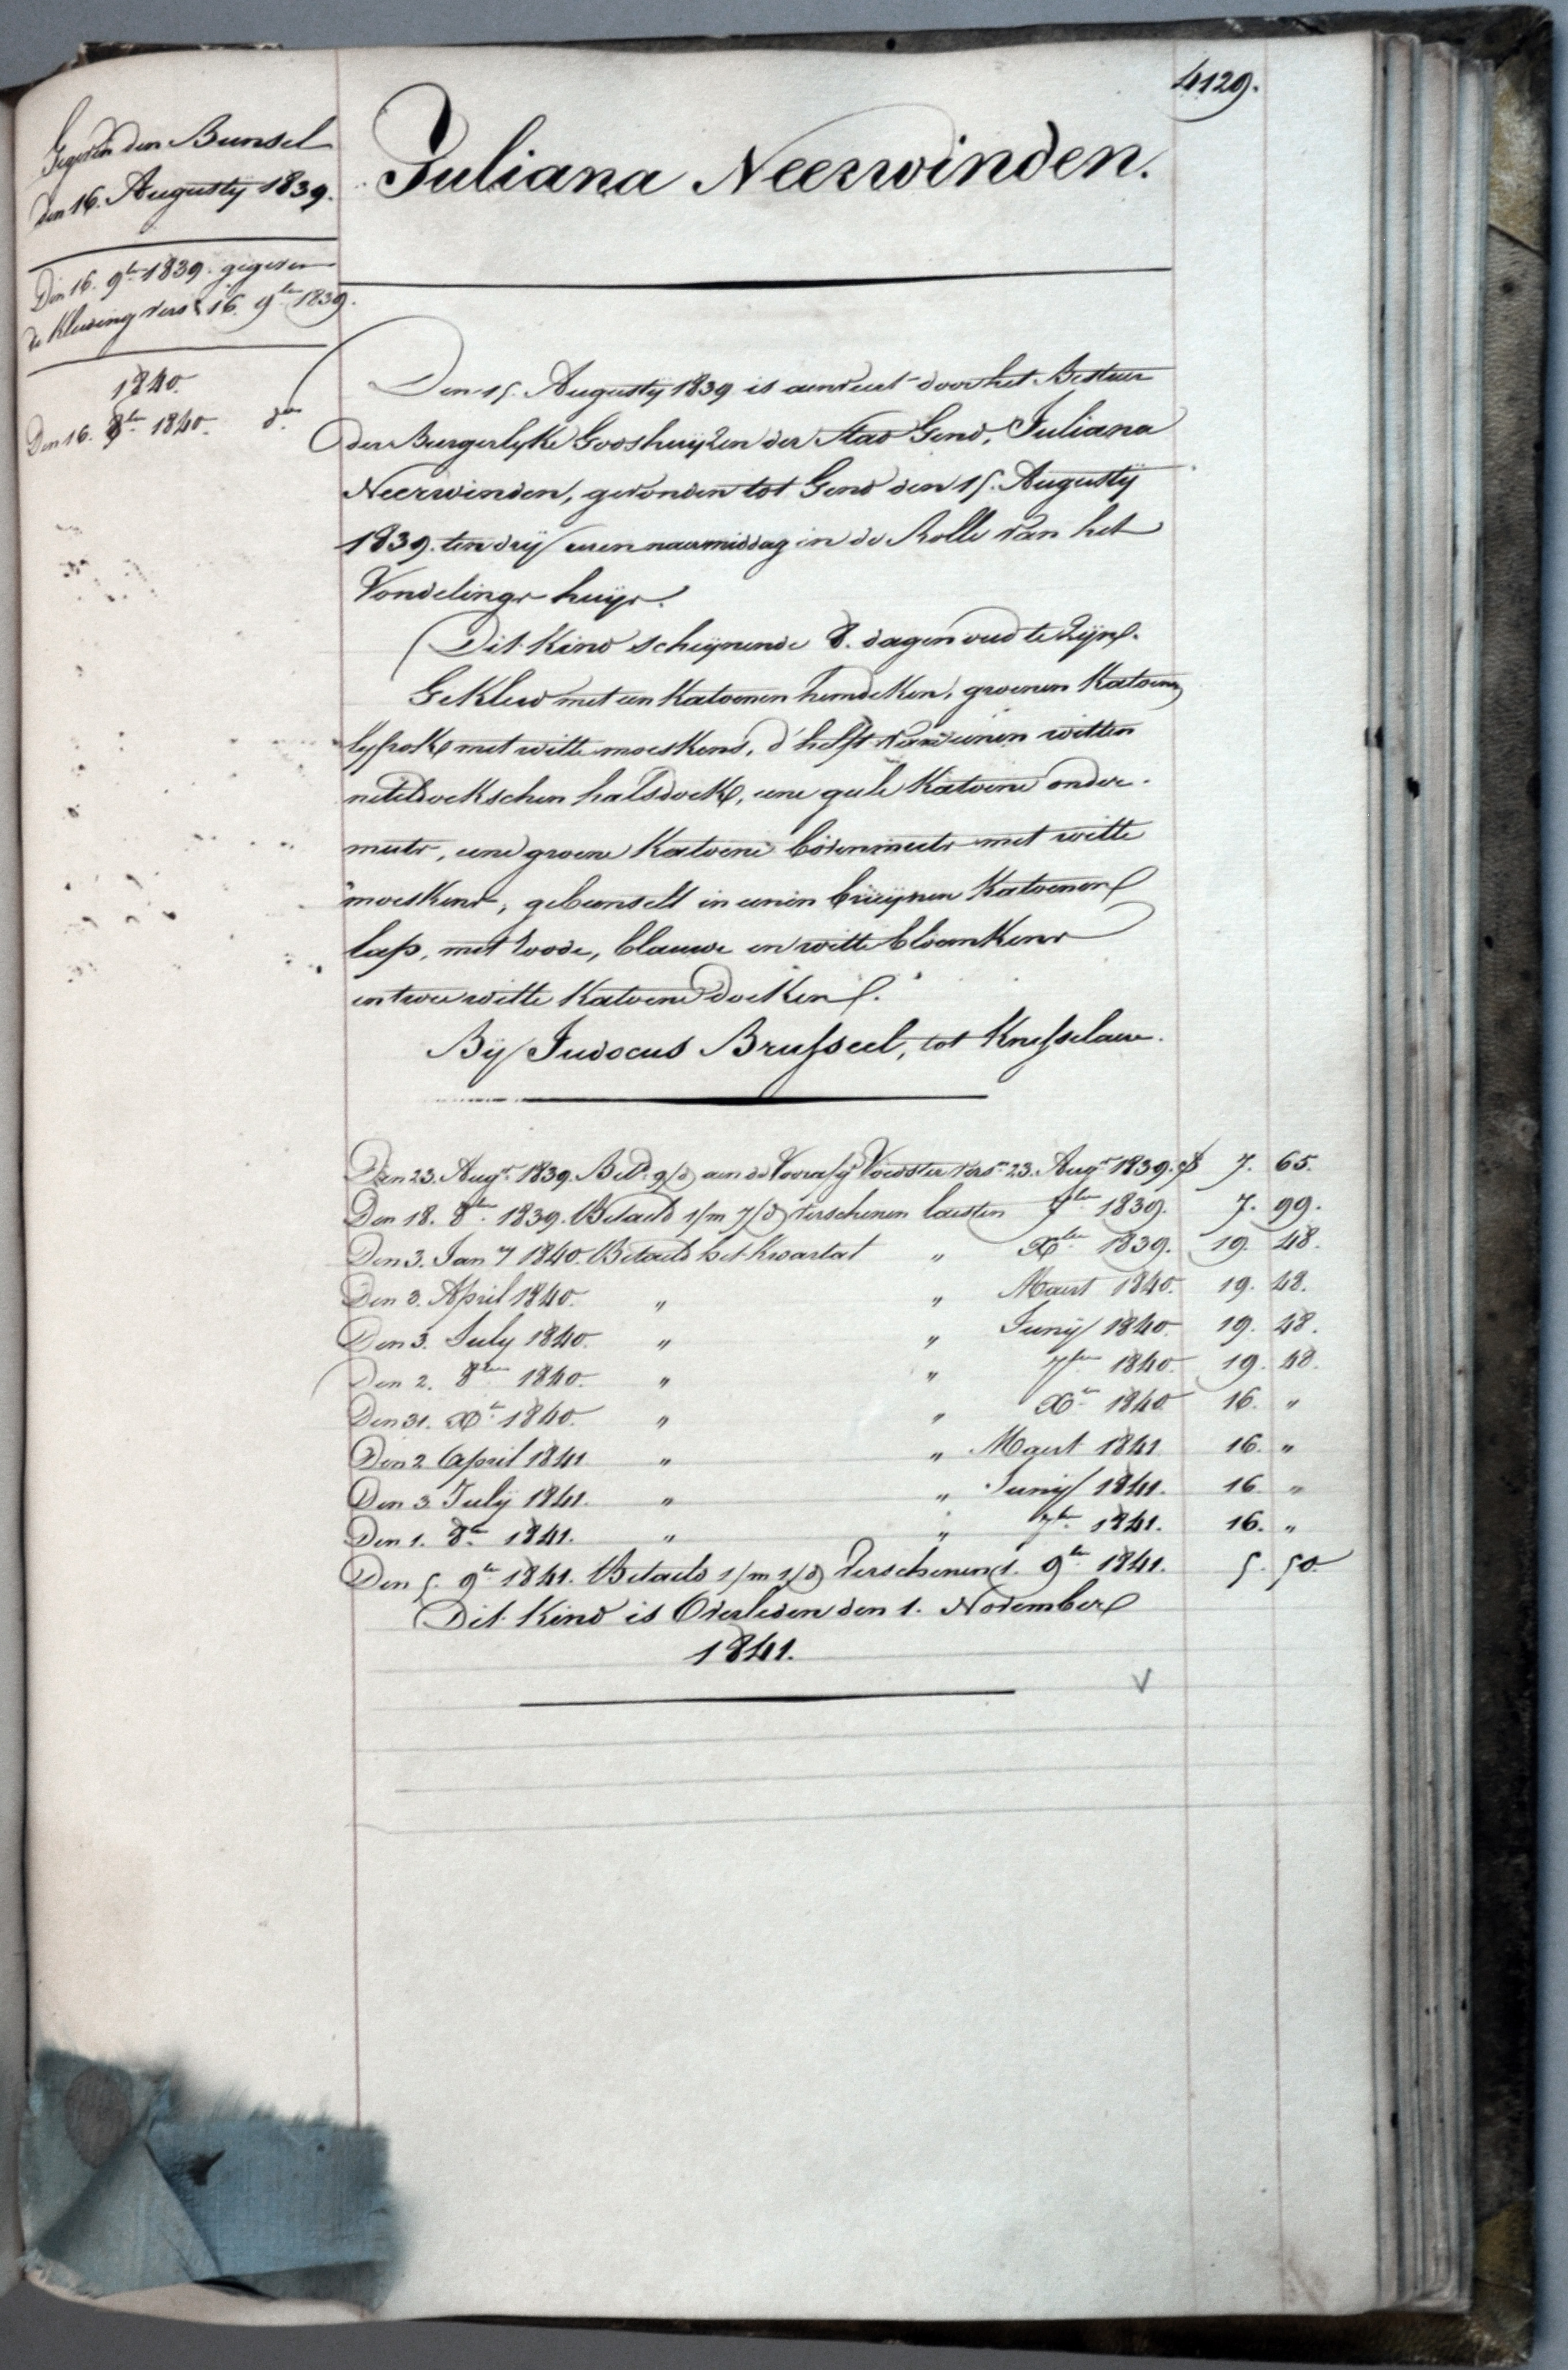 4129.
Gegeven den Bunsel
den 16. Augusty 1839.
Den 16. 9ber 1839. gegeven
de Kleeding vers. 16. 9ber 1839.
1840.
Den 16. 8ber 1840. do
Juliana Neerwinden.
Den 15. Augustij 1839 is aenveert door het Bestuer
der Burgerlyke Godshuijzen der Stad Gend, Juliana
Neerwinden, gevonden tot Gend den 15. Augustij
1839. ten drij uren naermiddag in de Rolle van het
Vondelings huijs.
Dit Kind scheijnende 8. dagen oud te Zijn.
Gekleed met een Katoenen hemdeken, groenen Katoenen
lyfrok met witte moeskens, d'helft van eenen witten
neteldoekschen halsdoek, eene geele Katoene onder-
muts, eene groene Katoene bovenmuts met witte
moeskens, gebunselt in eenen bruijnen Katoenen
lap, met roode, blauwe en witte bloemkens
en twee witte Katoene doeken.
Bij Judocus Brusseel, tot Knesselaere.
Den 23. Augt 1839. Betd 9/d aen de Voorafg Voedster vers. 23. Augt 1839. 7. 65.
Den 18. 8ber 1839. Betaeld 1/m 7/d verschenen laesten 7ber 1839. 7. 99.
Den 3. Jany 1840. Betaeld het Kwartael " Xber 1839. 19. 48.
Den 3. April 1840. " " Maert 1840. 19. 48.
Den 3. July 1840. " " Junij 1840. 19. 48.
Den 2. 8ber 1840. " " 7ber 1840. 19. 48.
Den 31. Xber 1840. " " Xber 1840. 16. "
Den 2 April 1841. " " Maert 1841. 16. "
Den 3. Julij 1841. " " Junij 1841. 16. "
Den 1. 8ber 1841. " " 7ber 1841. 16. "
Den 5. 9ber 1841. Betaeld 1/m 1/d Verschenen 1. 9ber 1841. 5. 50.
Dit Kind is Overleden den 1. November
1841.